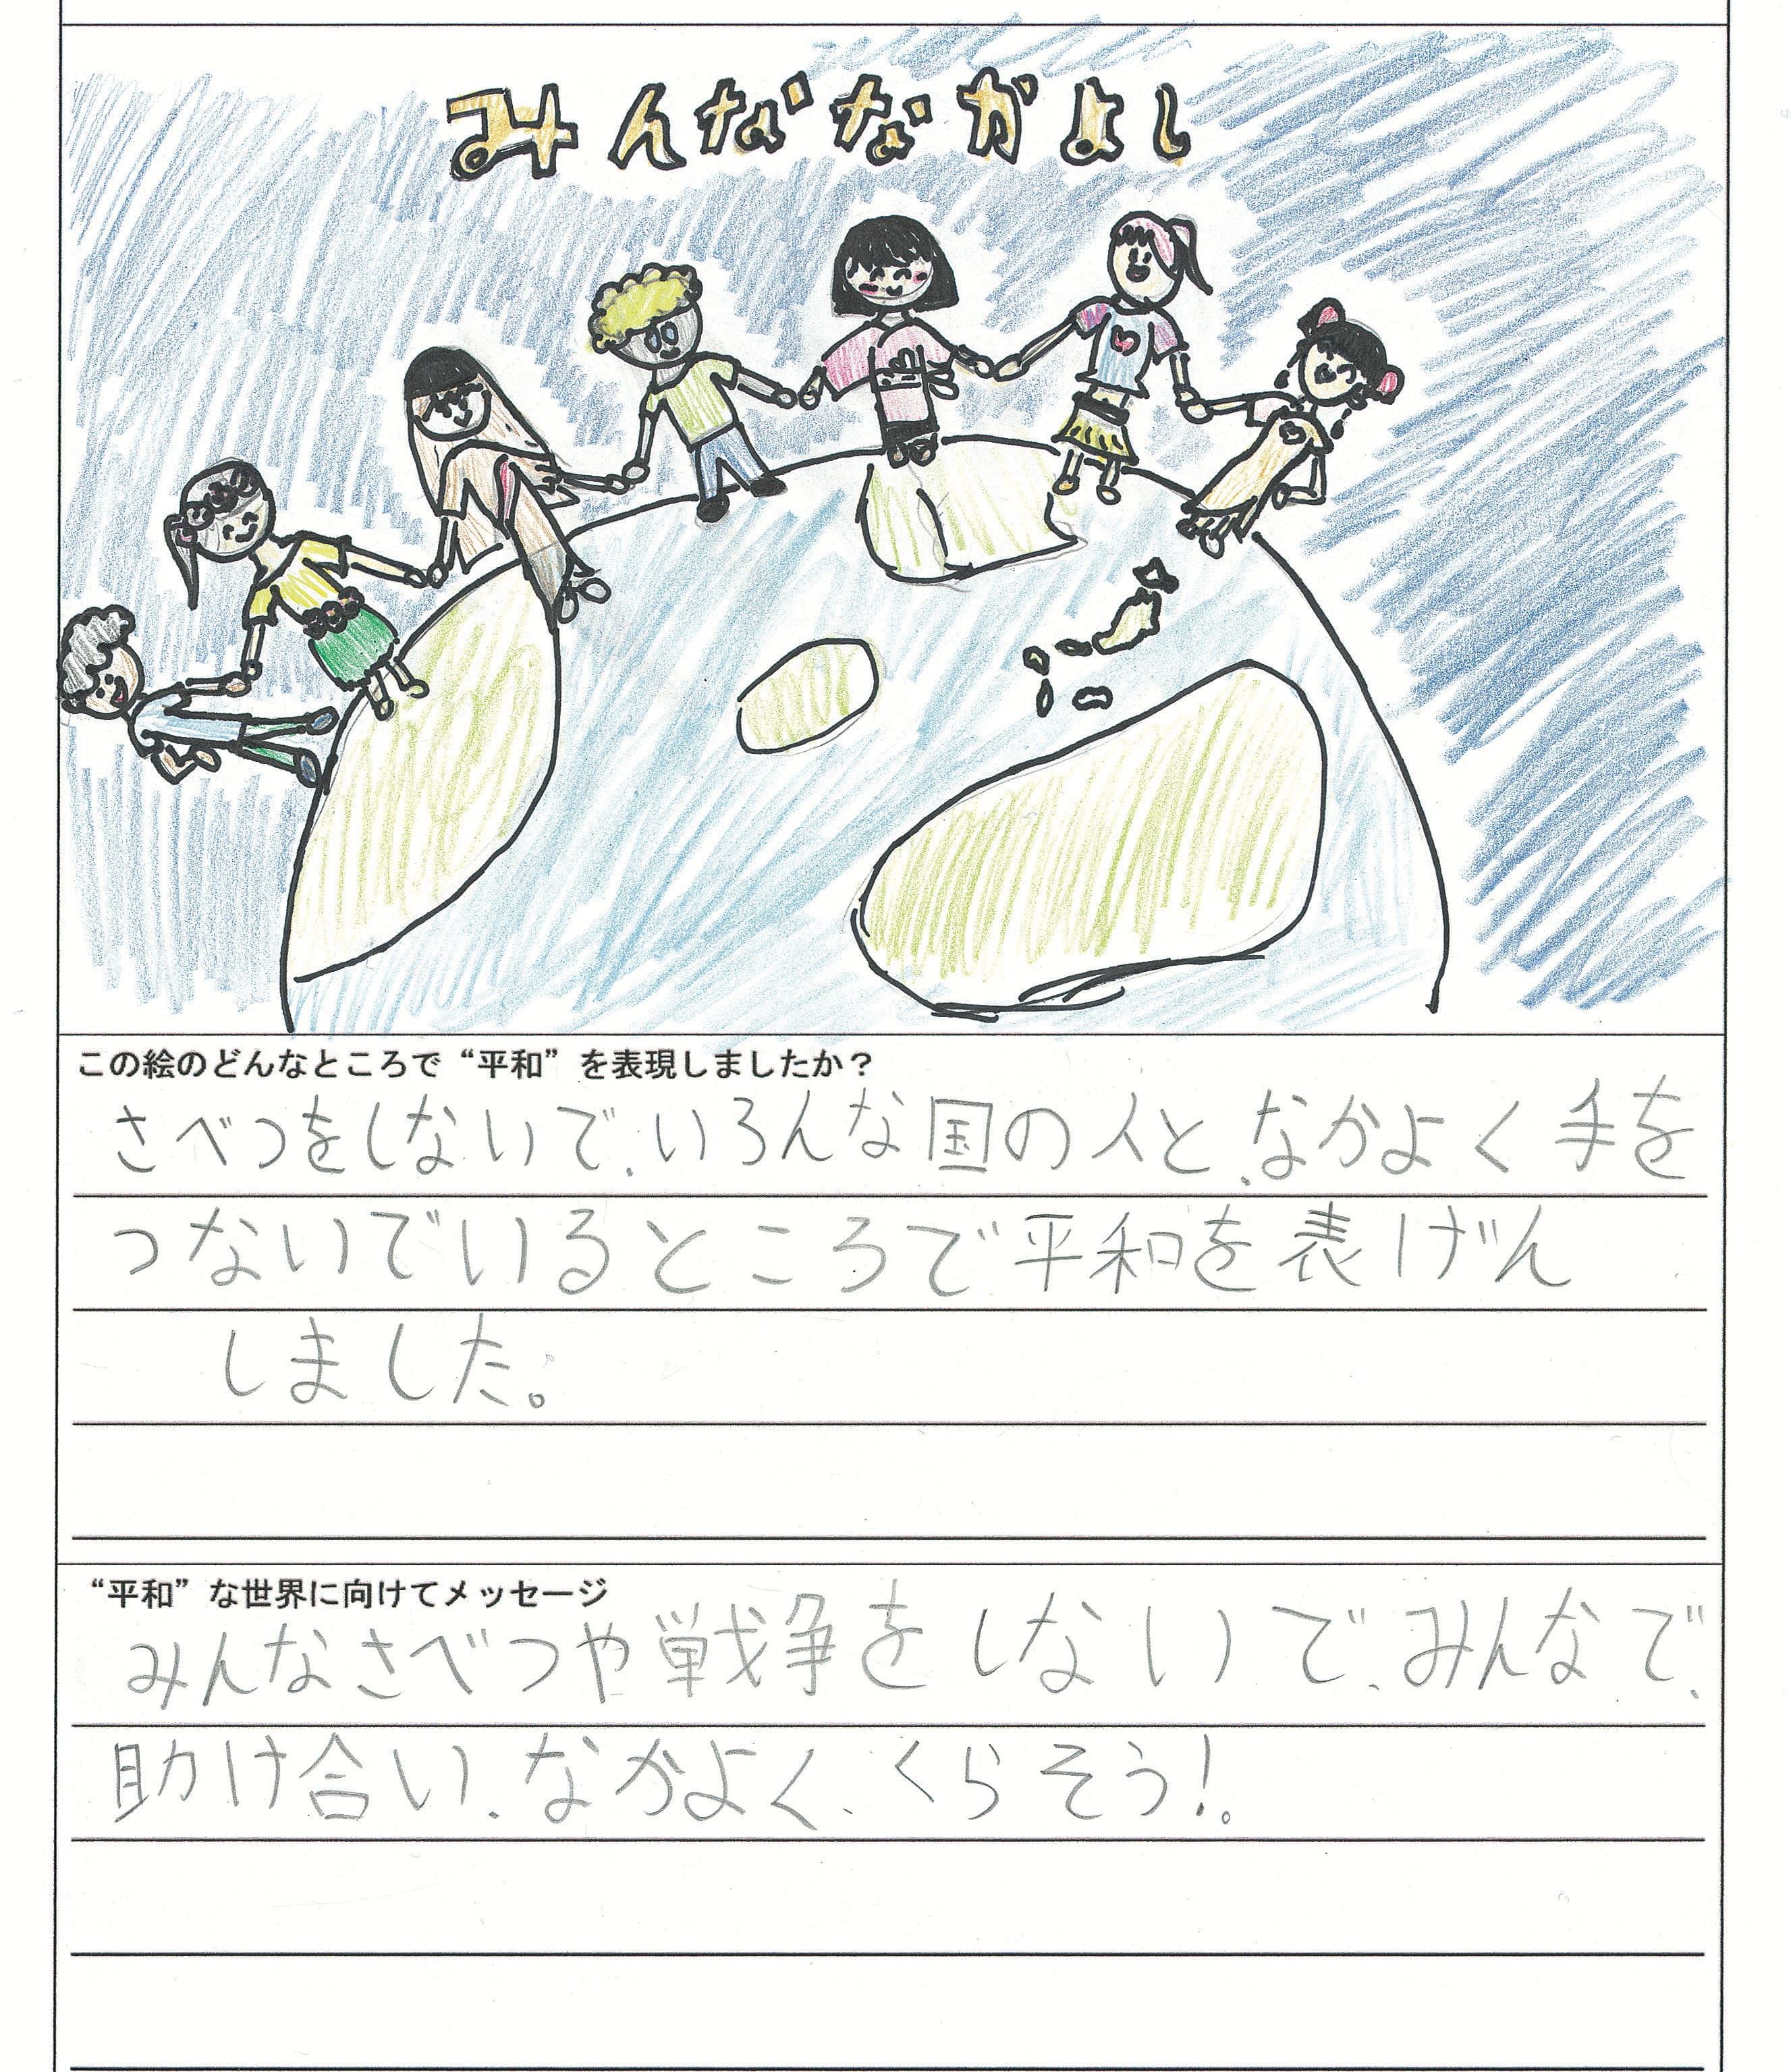 みんななかよし
この絵のどんなところで“平和”を表現しましたか？
さべつをしないで、いろんな国の人と、なかよく手を
つないでいるところで平和を表げん
しました。
“平和”な世界に向けてメッセージ
みんなさべつや戦争をしないで、みんなで、
助け合い、なかよく、くらそう！。